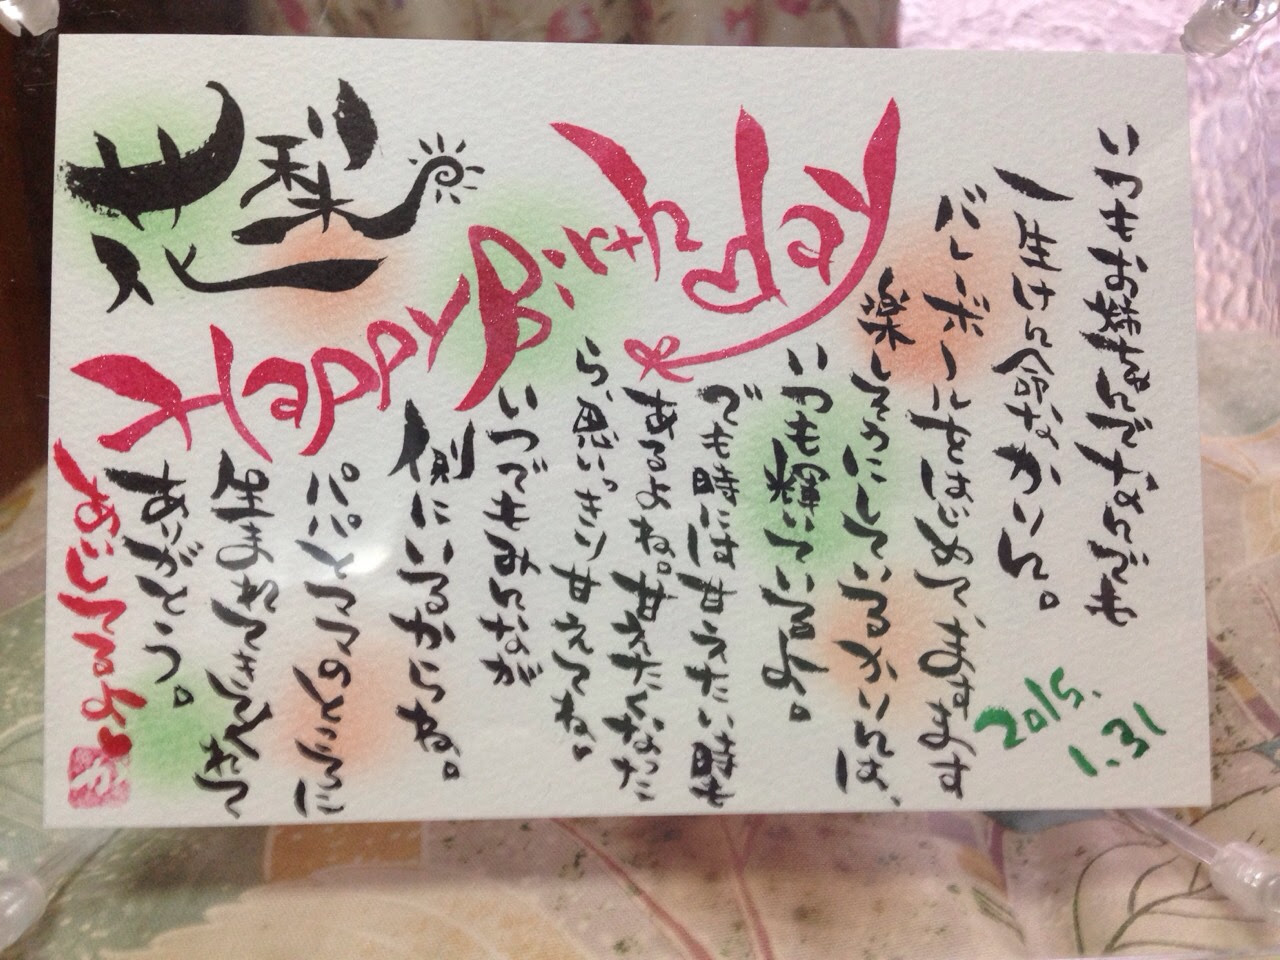 花梨
Happy Birthday
いつもお姉さんでなんでも
一生けん命なかりん。
バレーボールをはじめて、ますます
楽しそうにしているかりんは、
いつも輝いているよ。
でも時には甘えたい時も
あるよね。甘えたくなった
ら、思いっきり甘えてね。
いつでもみんなが
側にいるからね。
パパとママのところに
生まれてきてくれて
ありがとう。
あいしてるよ
2015.
1.31